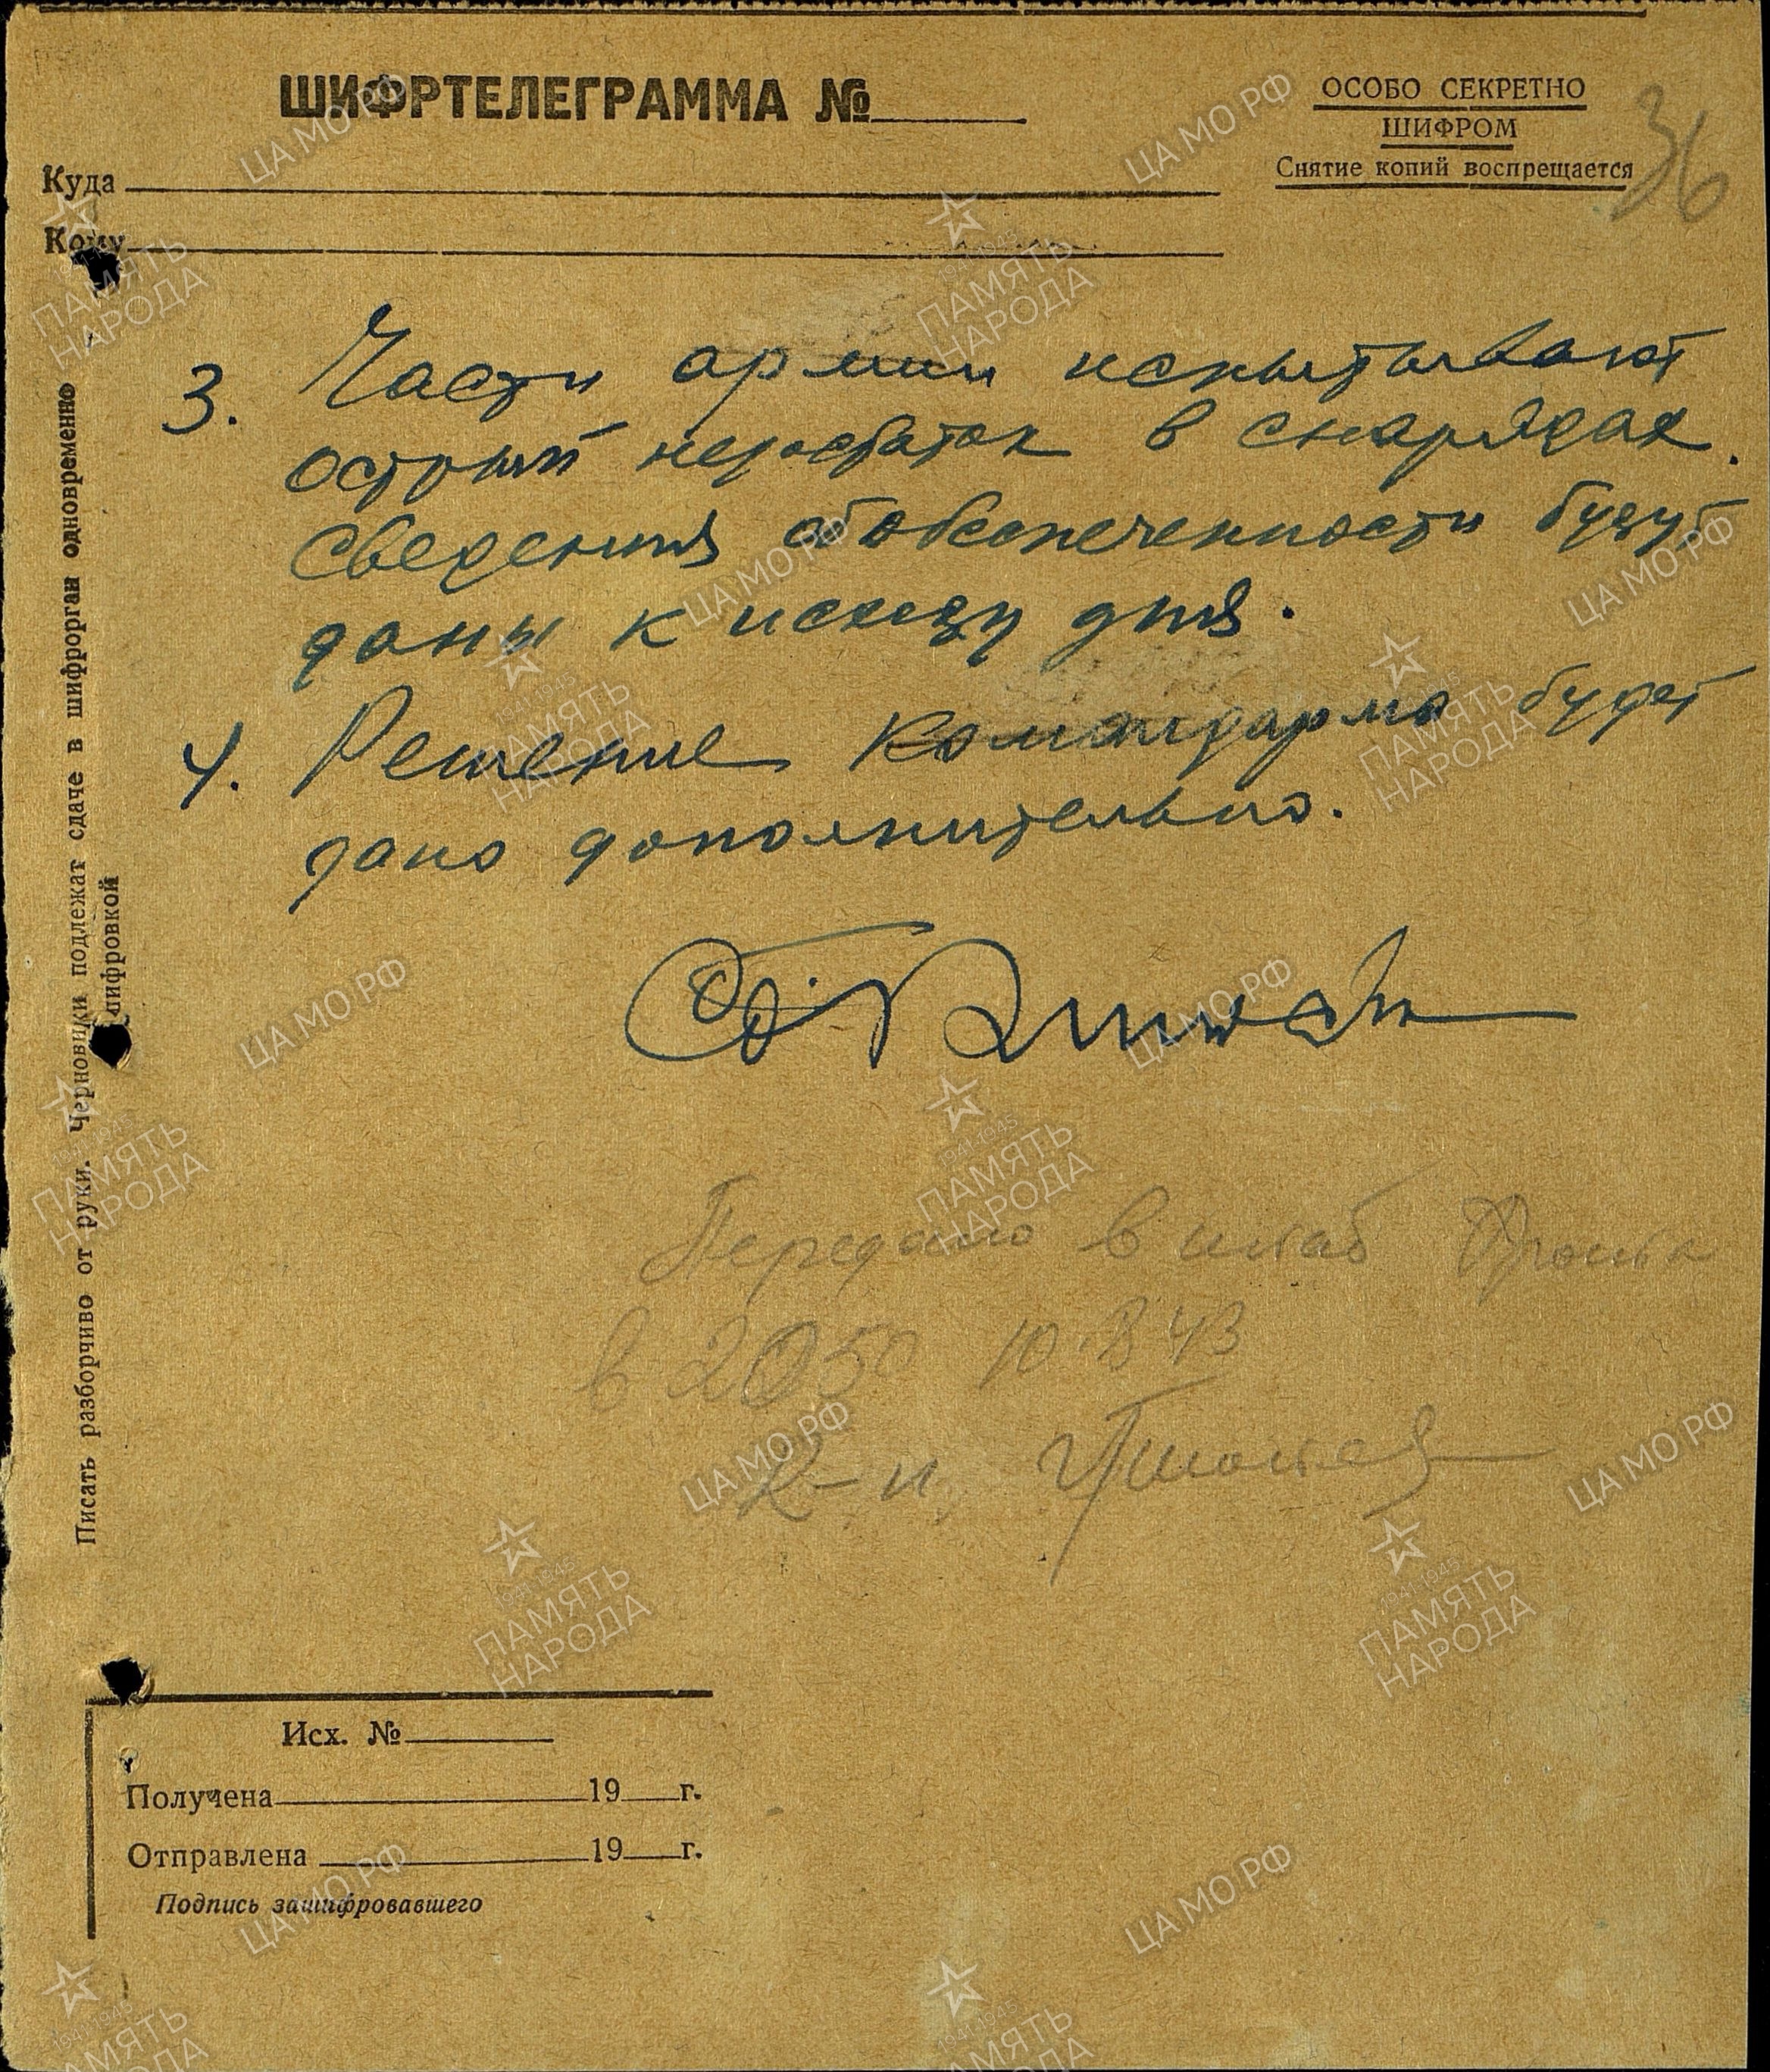 ШИФРТЕЛЕГРАММА №
ОСОБО СЕКРЕТНО
ШИФРОМ
Снятие копий воспрещается
36
Куда
Кому
3. Части армии испытывают
острый недостаток в снарядах.
Сведения обобеспеченности будут
даны к исходу дня.
4. Решение командарма будет
дано дополнительно.
Передано в штаб Фронта
в 2050 10.8 43
к-н
Писать разборчиво от руки. Черновики подлежат сдаче в шифрорган одновременно
шифровкой
Исх. №
Получена 19 г.
Отправлена 19 г.
Подпись зашифровавшего
ЦА МО РФ
1941-1945
ПАМЯТЬ
НАРОДА